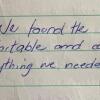 We found the
table and
thing we neede